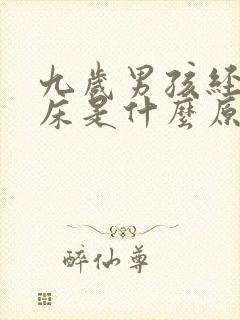 九歲男孩經
床是什麼原
醉仙尊